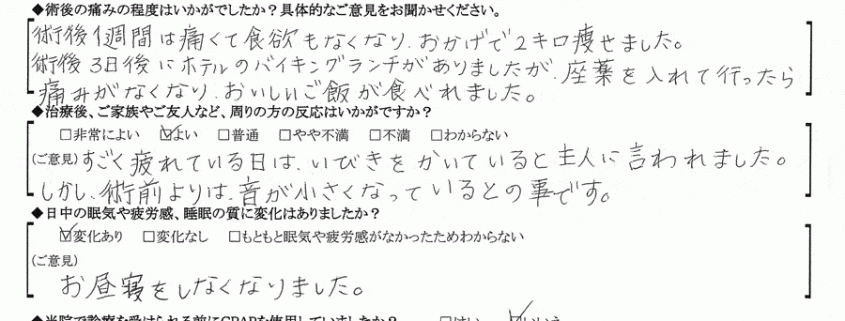 ◆術後の痛みの程度はいかがでしたか？具体的なご意見をお聞かせください。
術後1週間は痛くて食欲もなくなり、おかげで2キロ痩せました。
術後3日後にホテルのバイキングランチがありましたが、座薬を入れて行ったら
痛みがなくなり、おいしいご飯が食べれました。
◆治療後、ご家族やご友人など、周りの方の反応はいかがですか？
□非常によい ☑よい □普通 □やや不満 □不満 □わからない
(ご意見)すごく疲れている日は、いびきをかいていると主人に言われました。
しかし、術前よりは、音が小さくなっているとの事です。
◆日中の眠気や疲労感、睡眠の質に変化はありましたか？
☑変化あり □変化なし □もともと眠気や疲労感がなかったためわからない
(ご意見)
お昼寝をしなくなりました。
◆当院で診療を受けられる前にCPAPを使用していましたか？ □はい ☑いいえ